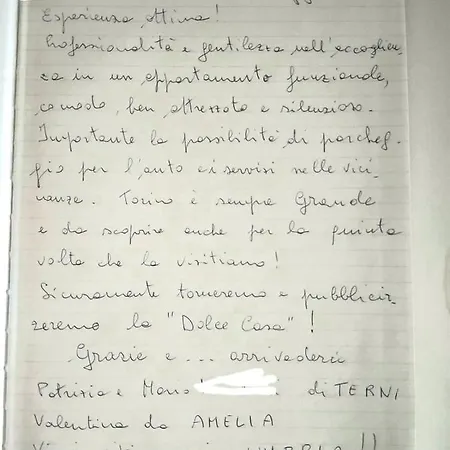 Esperienza ottima!
Professionalità e gentilezza nell'accoglien-
za in un appartamento funzionale,
comodo, ben attrezzato e silenzioso.
Importante la possibilità di parcheg-
gio per l'auto e i servizi nelle vici-
nanze. Torino è sempre Grande
e da scoprire anche per la quinta
volta che la visitiamo!
Sicuramente torneremo e pubbliciz-
zeremo la "Dolce Casa"!
Grazie e... arrivederci
Patrizia e Mario di TERNI
Valentina da AMELIA